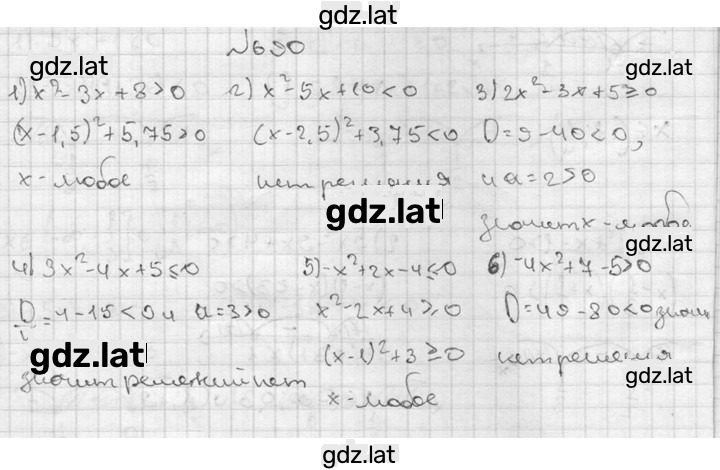 gdz.lat
№690
gdz.lat
gdz.lat
1) x²-3x+8>0
(x-1,5)²+5,75>0
x-любое
2) x²-5x+10<0
(x-2,5)²+3,75<0
нет решения
3) 2x²-3x+5≥0
D=9-40<0,
и a=2>0
значит x-любое
gdz.lat
gdz.lat
4) 3x²-4x+5≤0
D/4=4-15<0 и a=3>0
gdz.lat
значит решений нет
5) -x²+2x-4≤0
x²-2x+4≥0
(x-1)²+3≥0
x-любое
6) -4x²+7-5>0
D=49-80<0 значит
gdz.lat
нет решения
gdz.lat
gdz.lat